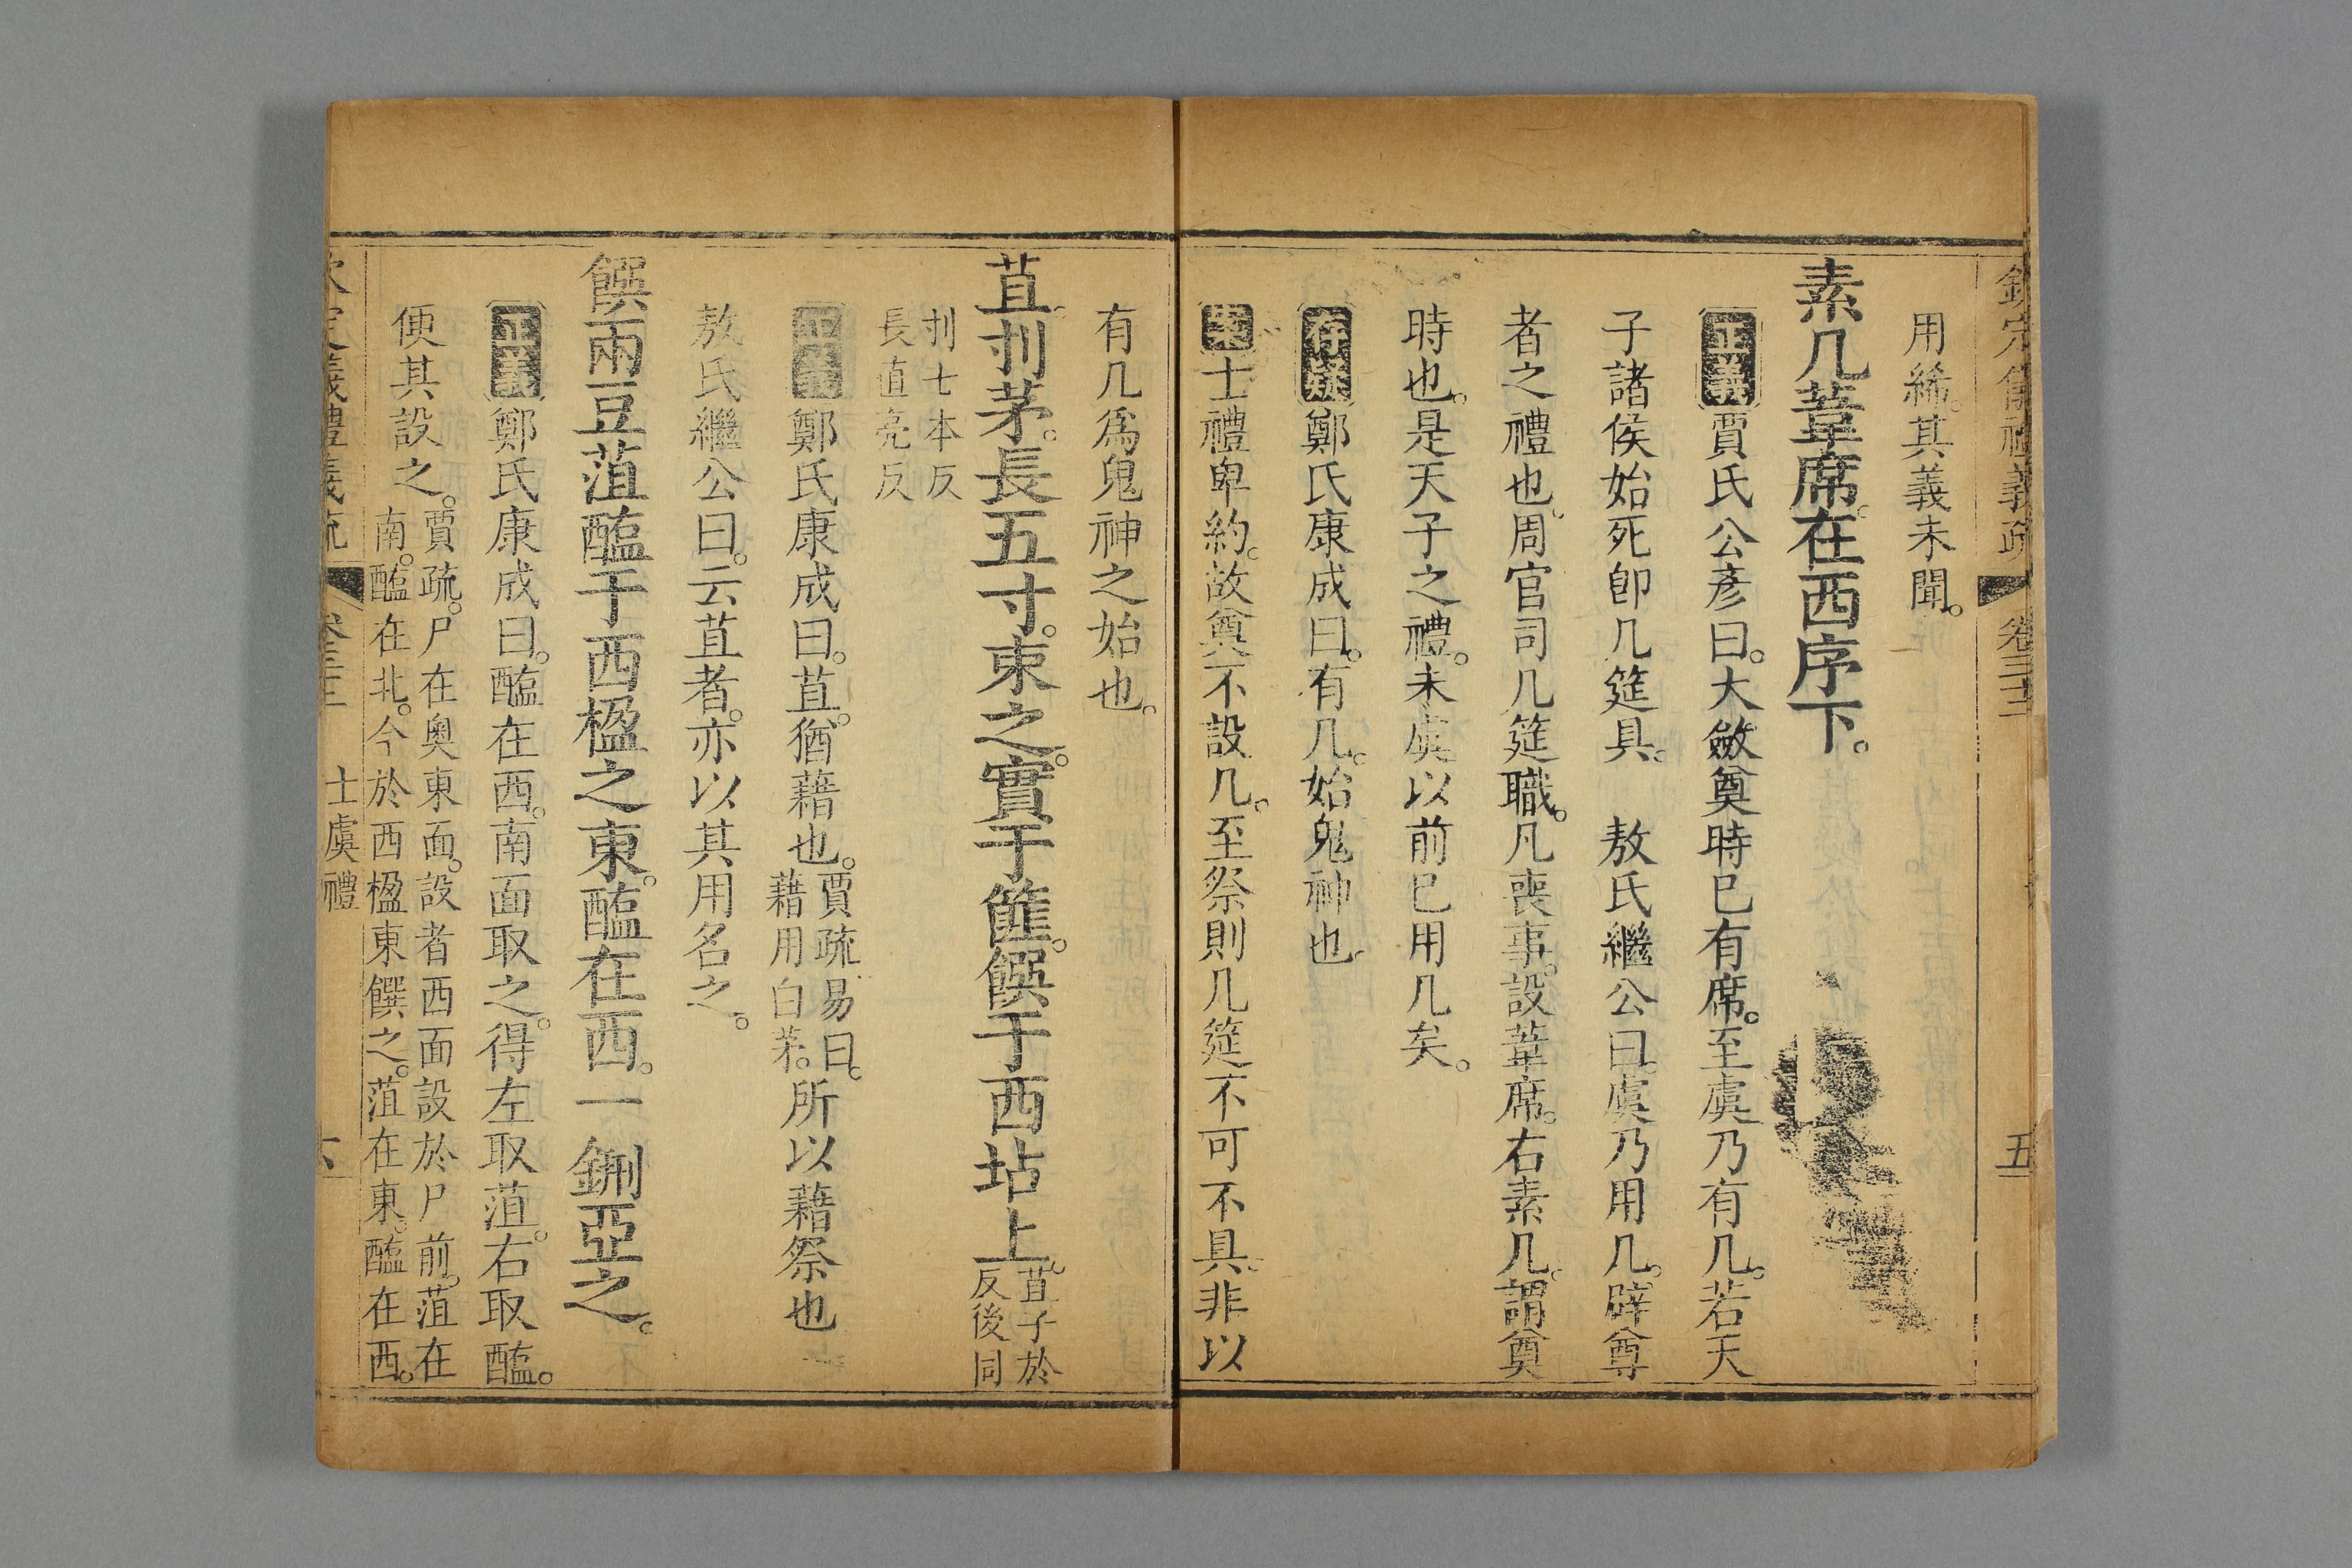 欽定儀禮義疏 卷三十三 五
用絺其義未聞。
素几葦席。在西序下。
正義賈氏公彥曰。大斂奠時已有席。至虞乃有几。若天
子諸侯始死卽几筵具。 敖氏繼公曰。虞乃用几。辟尊
者之禮也。周官司几筵職。凡喪事。設葦席。右素几。謂奠
時也。是天子之禮。未虞以前已用几矣。
存疑鄭氏康成曰。有几。始鬼神也。
案士禮卑約。故奠不設几。至祭則几筵不可不具。非以
有几爲鬼神之始也。
苴。刌茅。長五寸。束之。實于篚。饌于西坫上。苴子於
反後同
刌七本反
長直亮反
正義鄭氏康成曰。苴。猶藉也。賈疏易曰。
藉用白茅。所以藉祭也
敖氏繼公曰。云苴者。亦以其用名之。
饌兩豆菹醢于西楹之東。醢在西。一鉶亞之。
正義鄭氏康成曰。醢在西。南面取之。得左取菹。右取醢。
便其設之。賈疏。尸在奧東面。設者西面設於尸前。菹在
南。醢在北。今於西楹東饌之。菹在東。醢在西。
士虞禮